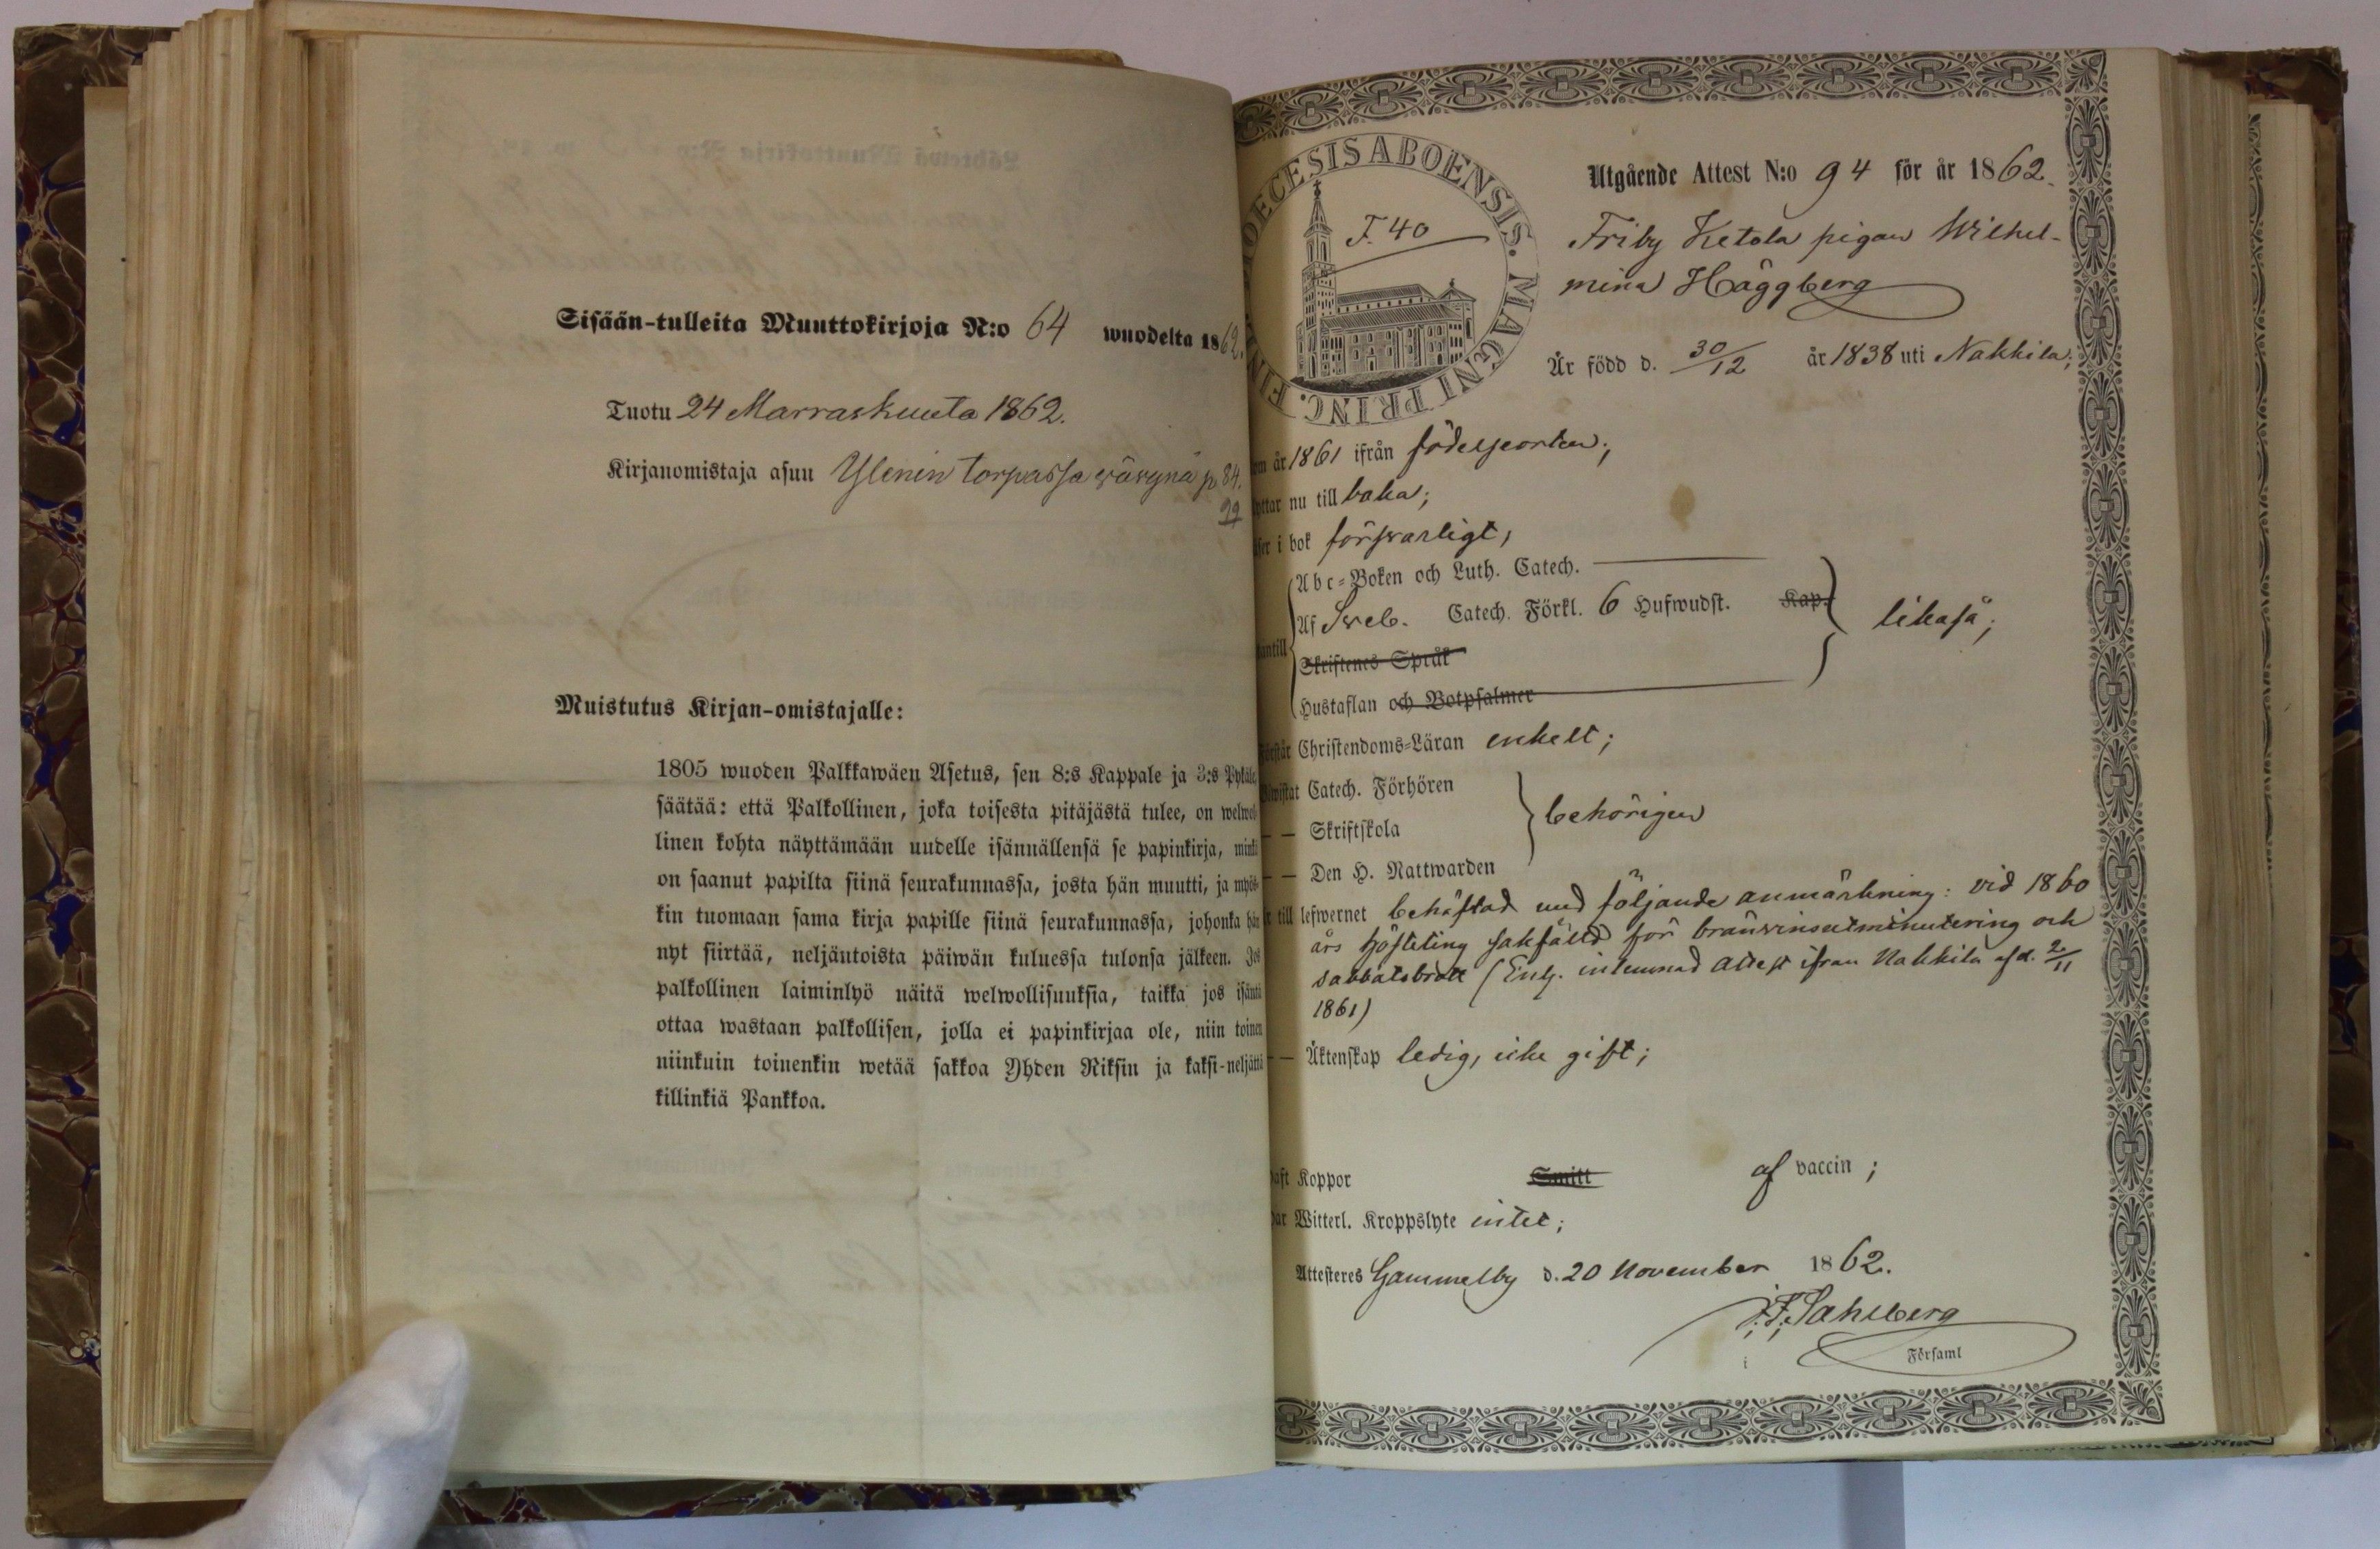 Sisään-tulleita Muuttokirjoja N:o 64 wuodelta 1862.
Tuotu 24 Marraskuuta 1862.
Kirjanomistaja asuu Ylenin torpassa p 84.
99
Muistutus Kirjan-omistajalle:
1805 wuoden Palkkawäen Asetus, sen 8:s Kappale ja 3:s Pykälä
säätää: että Palkollinen, joka toisesta pitäjästä tulee, on welwol-
linen kohta näyttämään uudelle isännällensä se papinkirja, minkä
on saanut papilta siinä seurakunnassa, josta hän muutti, ja myös-
kin tuomaan sama kirja papille siinä seurakunnassa, johonka hän
nyt siirtää, neljäntoista päiwän kuluessa tulonsa jälkeen. Jos
palkollinen laiminlyö näitä welwollisuuksia, taikka jos isäntä
ottaa wastaan palkollisen, jolla ei papinkirjaa ole, niin toinen
niinkuin toinenkin wetää sakkoa Yhden Riksin ja kaksi-neljättä
killinkiä Pankkoa.
DIOECESIS ABOENSIS. MAGNI PRINC. FIN
F. 40
Utgående Attest N:o 94 för år 1862.
Friby Ketola pigan Wilhel-
mina Häggberg
Är född d. 30/12 år 1838 uti Nakkila;
om år 1861 ifrån födelseorten;
yttar nu till baka;
äser i bok försvarligt,
Abc-Boken och Luth. Catech.
Af Sveb. Catech. Förkl. 6 Hufwudst. Kap.
likaså;
antill
Skriftenes Språk
Hustaflan och Botpsalmer
Förstår Christendoms-Läran enkelt;
Bewistat Catech. Förhören
— — Skriftskola
behörigen
— — Den H. Nattwarden
r till lefwernet behäftad med följande anmärkning: vid 1860
års hösteting sakfälld för bränvinsutminutering och
sabbatsbrott (Enl. inlemnad attest ifrån Nakkila af d. 2/11
1861)
— — Äktenskap ledig, icke gift;
haft Koppor Smitt af vaccin;
har Witterl. Kroppslyte intet;
Attesteres Gammelby d. 20 November 1862.
J. F. Sahlberg
i Församl